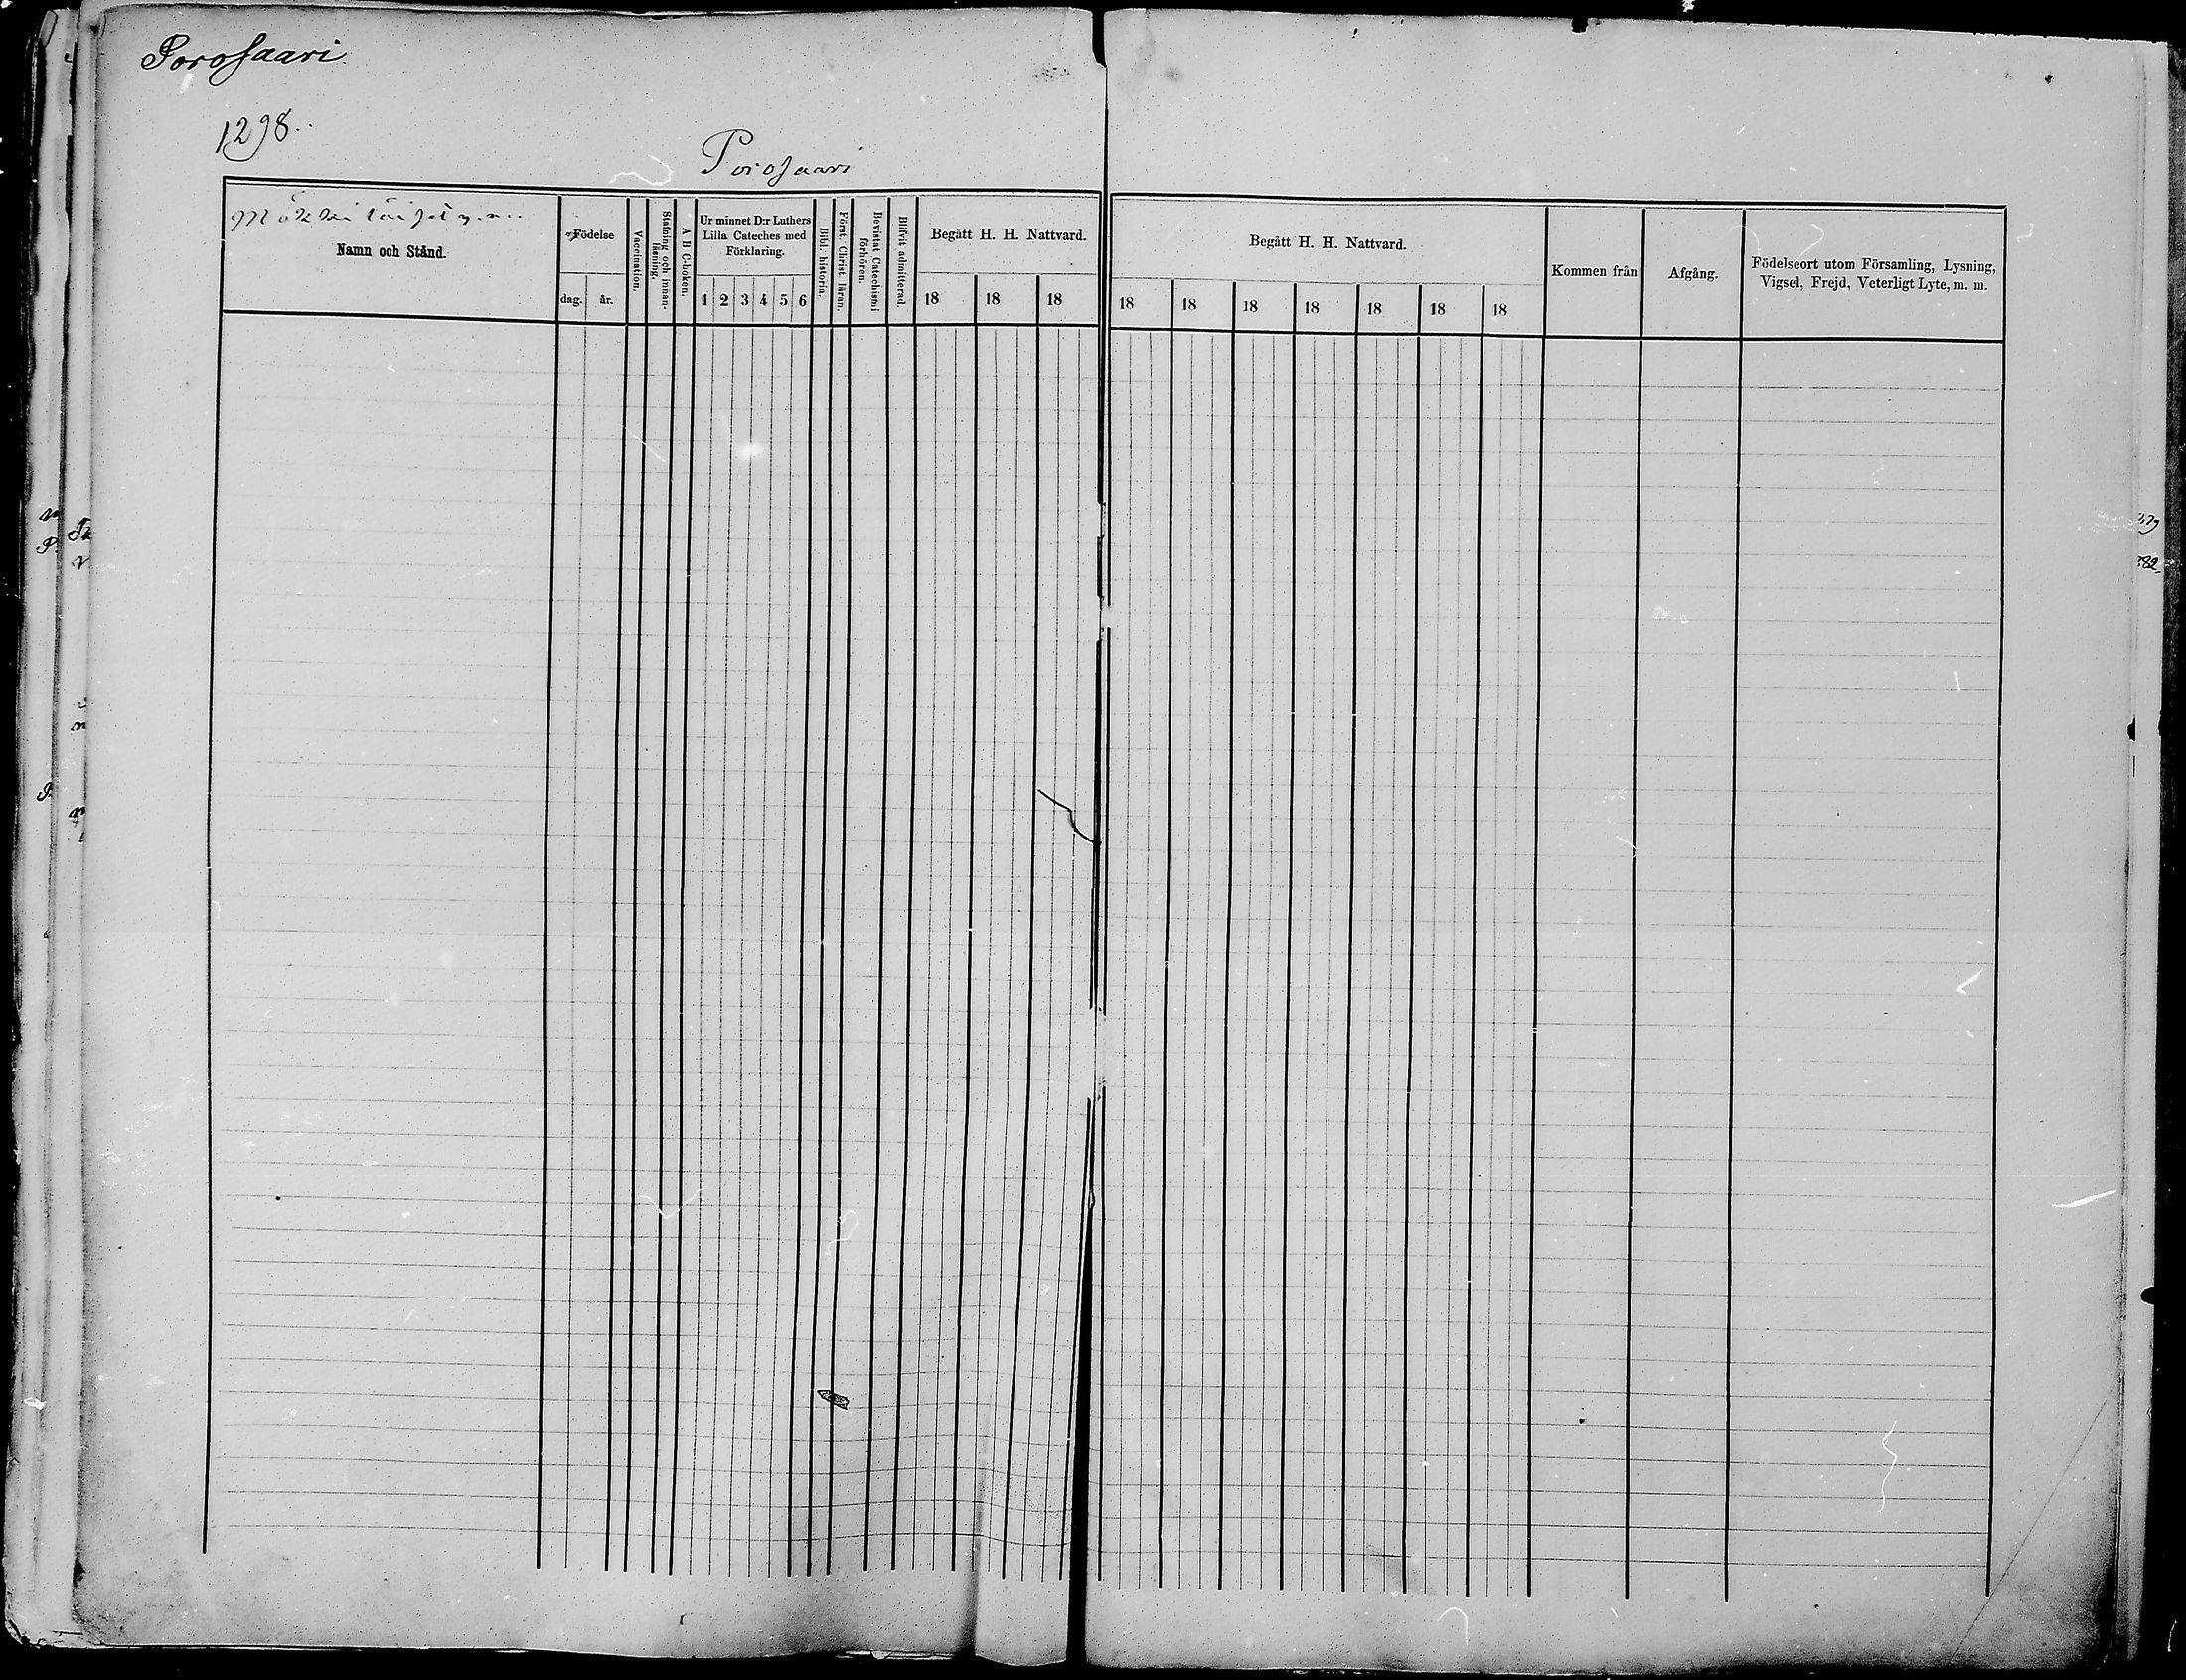 Porosaari
1298.
Porosaari
Namn och Stånd.
Födelse
dag.
år.
Vaccination.
Stafning och innan-
läsning.
A B C-boken.
Ur minnet D:r Luthers
Lilla Cateches med
Förklaring.
1 2 3 4 5 6
Bibl. historia.
Först. Christ. läran.
Bevistat Catechismi
förhören.
Blifvit admitterad.
Begått H. H. Nattvard.
18 18 18
Begått H. H. Nattvard.
18 18 18 18 18 18 18
Kommen från
Afgång.
Födelseort utom Församling, Lysning,
Vigsel, Frejd, Veterligt Lyte, m. m.